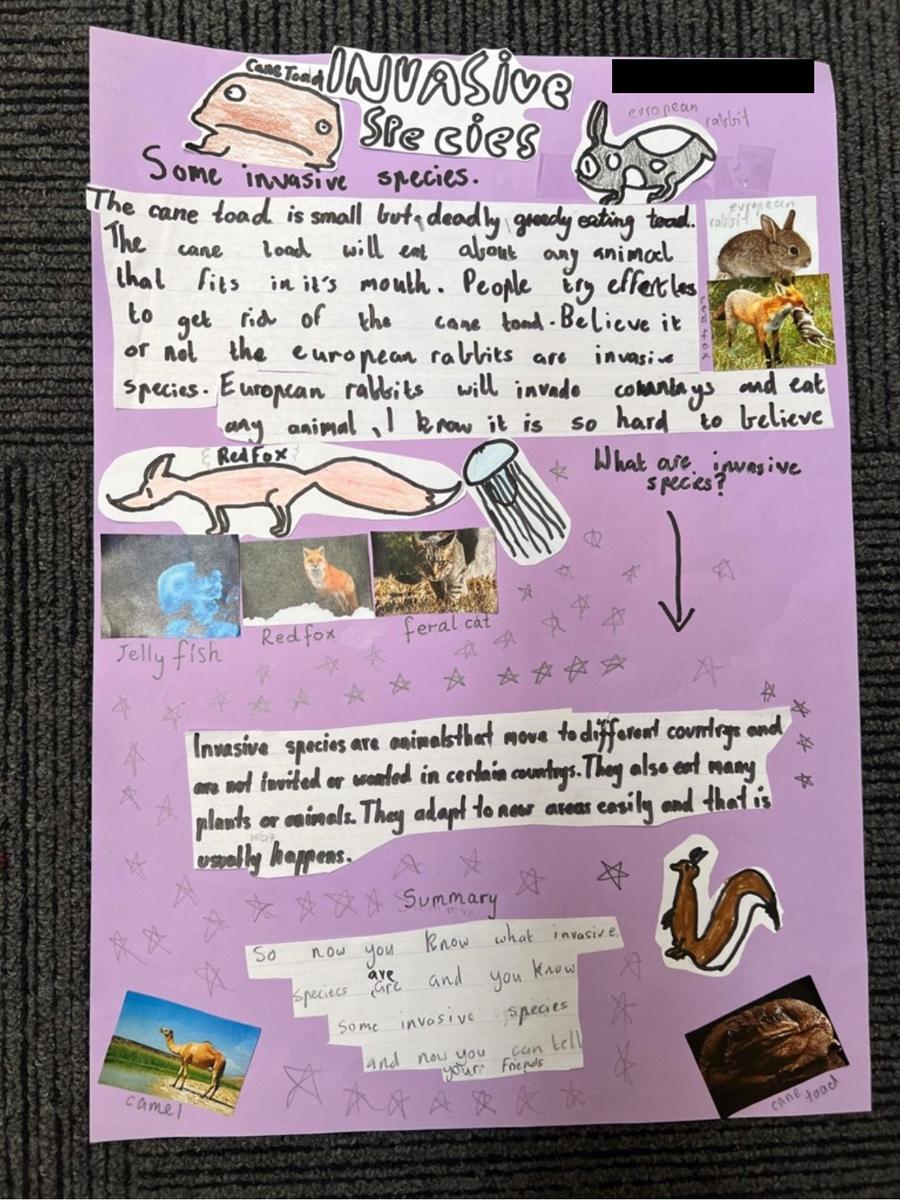 Cane Toad
INVASIVE
Species
european
rabbit
Some invasive species.
The cane toad is small but a deadly greedy eating toad.
The cane toad will eat about any animal
that fits in it's mouth. People try effortles
to get rid of the cane toad. Believe it
or not the european rabbits are invasive
species. European rabbits will invade
and eat
any animal, I know it is so hard to believe
european
rabbit
red fox
Red Fox
What are invasive
species?
Jelly fish
Red fox
feral cat
Invasive species are animals that move to different countrys and
are not invited or wanted in certain countrys. They also eat many
plants or animals. They adapt to new areas easily and that is
way
usually happens.
Summary
So now you know what invasive
species are and you know
are
Some invasive species
and now you can tell
your Friends
camel
cane toad